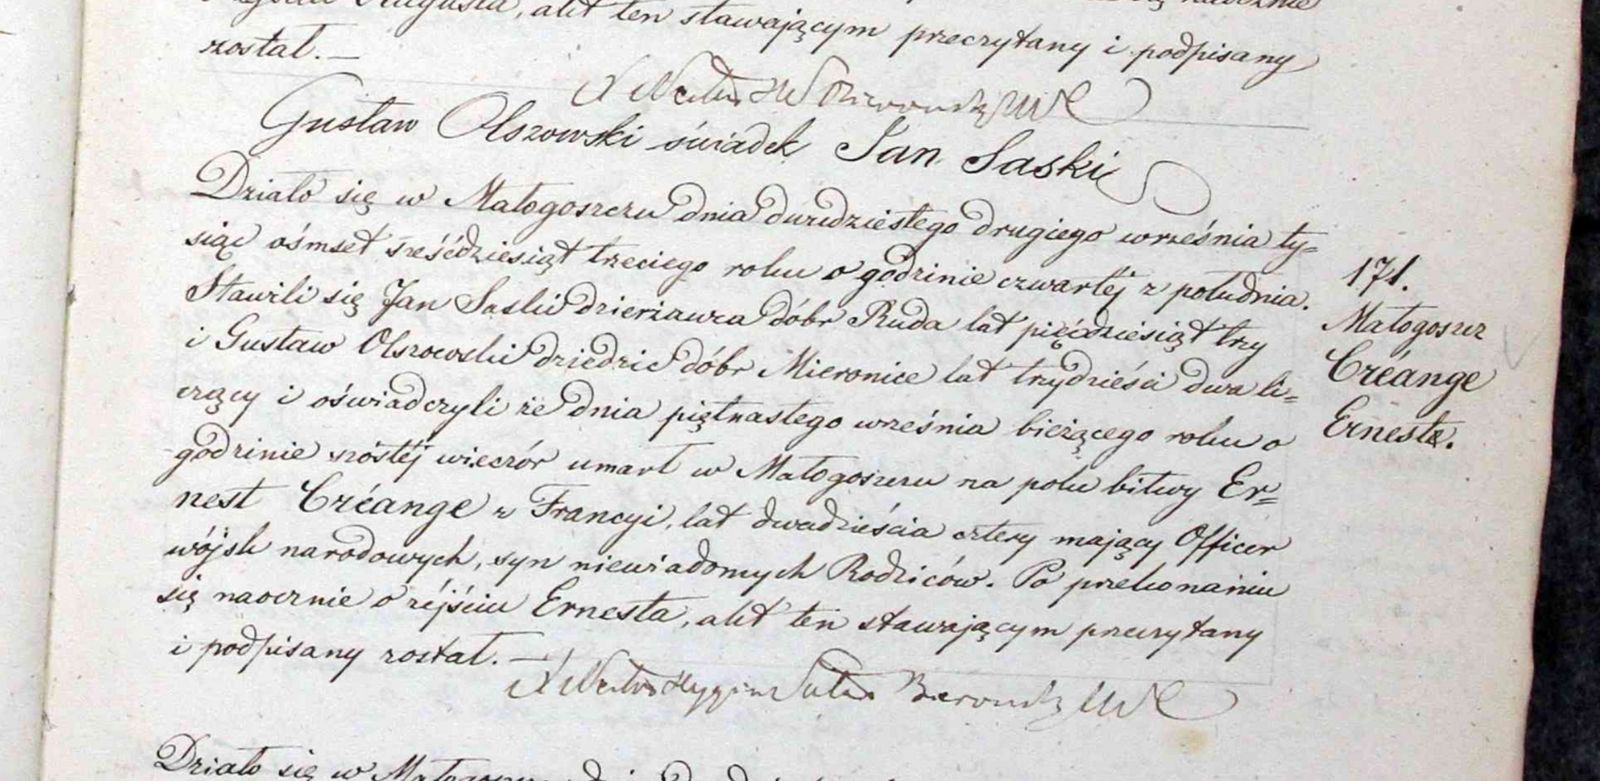 Augusta, akt ten stawającym przeczytany i podpisany
został. —
Gustaw Olszowski świadek Jan Saski
Działo się w Małogoszczu dnia dwudziestego drugiego września ty=
siąc ośmset sześćdziesiąt trzeciego roku o godzinie czwartéj z południa.
Stawili się Jan Saski dzierżawca dóbr Ruda lat pięćdziesiąt trzy
i Gustaw Olszowski dziedzic dóbr Mieronice lat trzydzieści dwa li=
czący i oświadczyli że dnia piętnastego września bieżącego roku o
godzinie szóstéj wieczór umarł w Małogoszczu na polu bitwy Er=
nest Créange z Francyi, lat dwadzieścia cztery mający Officer
wójsk narodowych, syn niewiadomych Rodziców. Po przekonaniu
się naocznie o zéjściu Ernesta, akt ten stawającym przeczytany
i podpisany został. —
171.
Małogoszcz
Créange
Ernest.
Działo się w